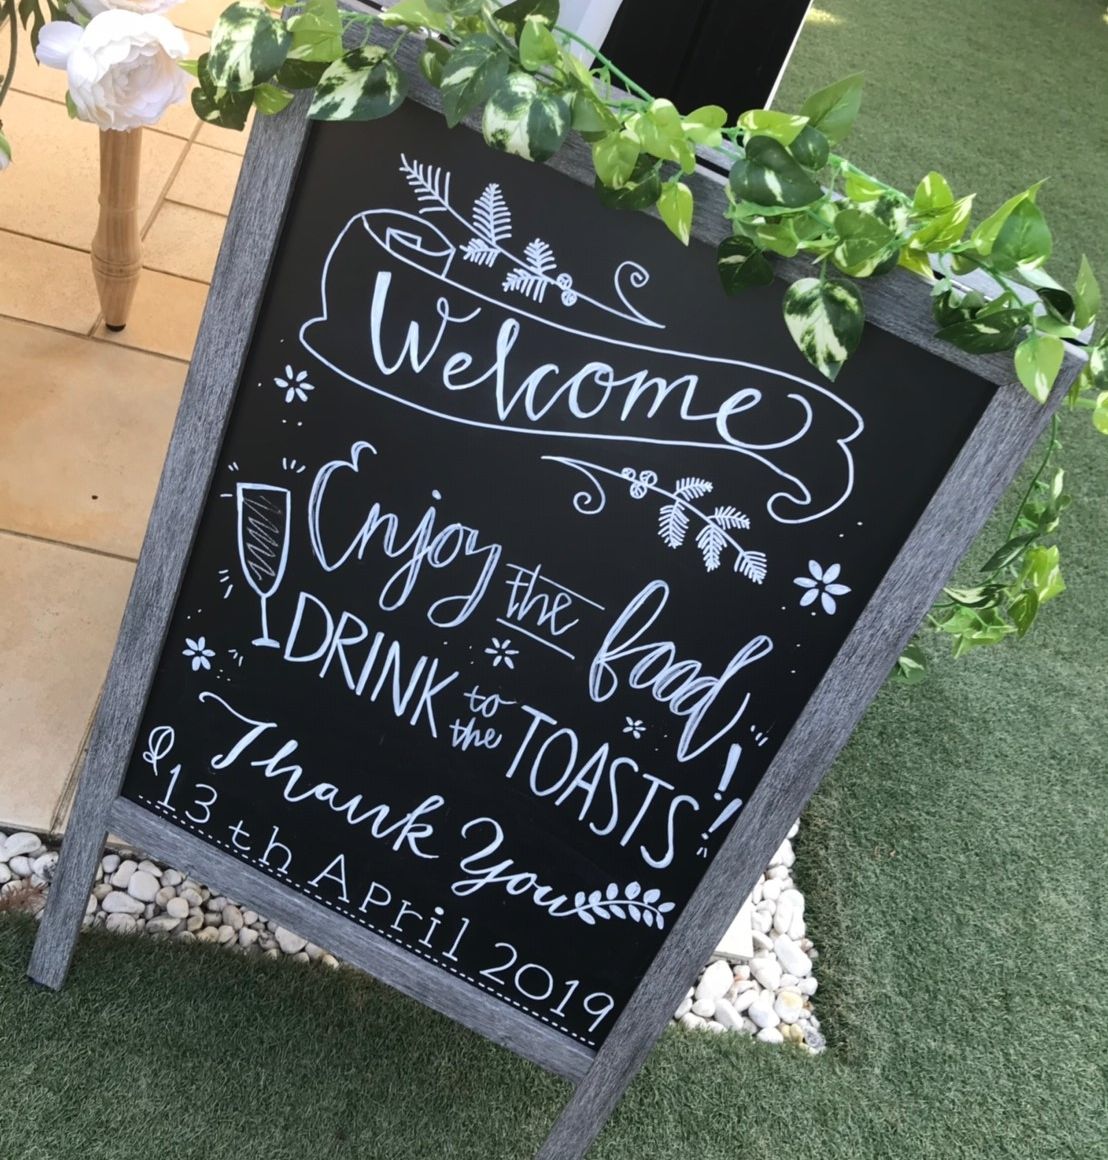 Welcome
Enjoy the food!
DRINK to the TOASTS!
& Thank You
13th April 2019